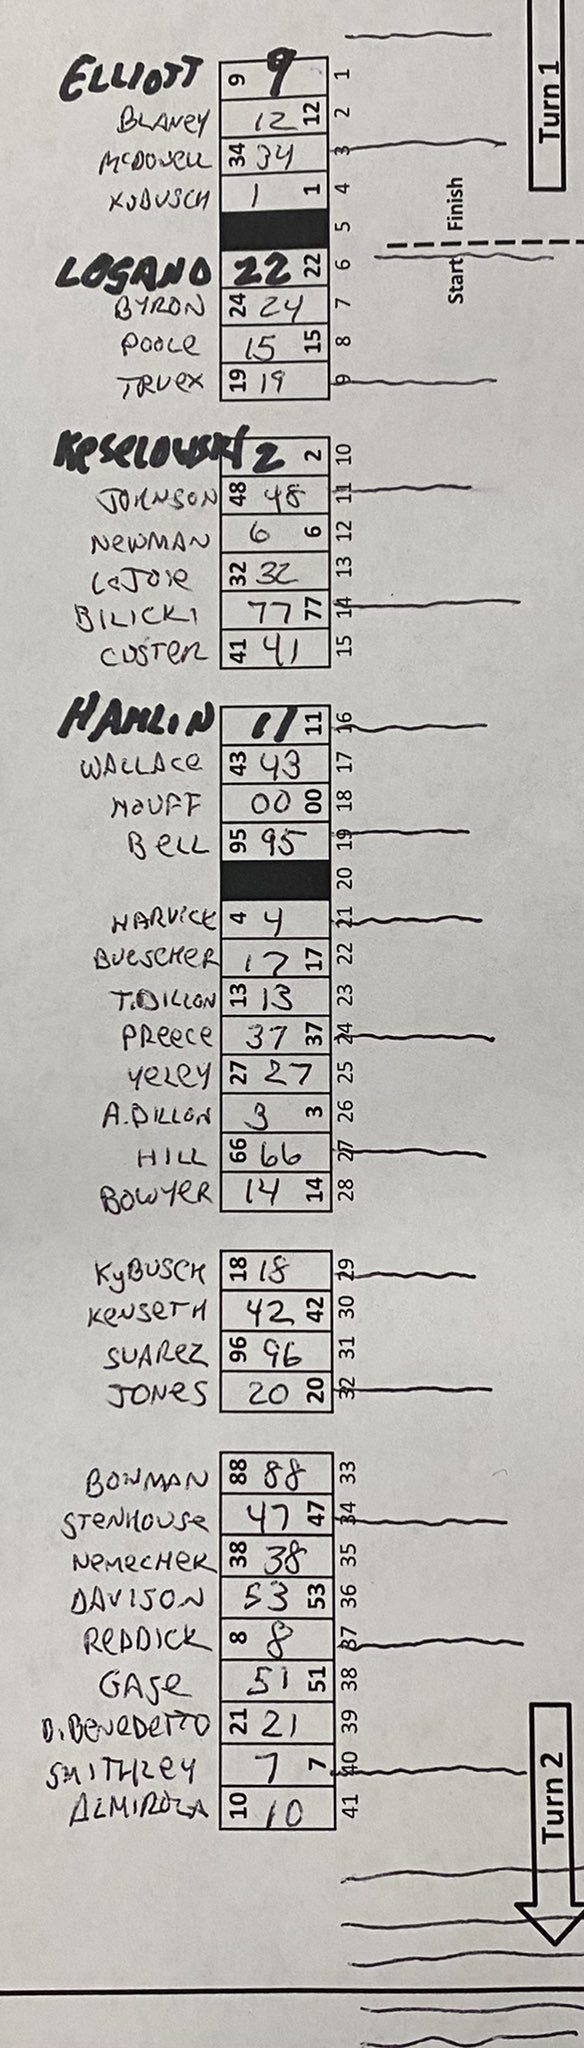 Turn 1
ELLIOTT 9 9 1
BLANEY 12 12 2
McDOWELL 34 34 3
KUBUSCH 1 1 4
5
Start Finish
LOGANO 22 22 6
BYRON 24 24 7
POOLE 15 15 8
TRUEX 19 19 9
KESELOWSKI 2 2 10
JOHNSON 48 48 11
NEWMAN 6 6 12
LAJOIE 32 32 13
BILICKI 77 77 14
CUSTER 41 41 15
HAMLIN 11 11 16
WALLACE 43 43 17
HOUFF 00 00 18
BELL 95 95 19
20
HARVICK 4 4 21
BUESCHER 17 17 22
T.DILLON 13 13 23
PREECE 37 37 24
YELEY 27 27 25
A.DILLON 3 3 26
HILL 66 66 27
BOWYER 14 14 28
KyBUSCH 18 18 29
KENSETH 42 42 30
SUAREZ 96 96 31
JONES 20 20 32
BOWMAN 88 88 33
STENHOUSE 47 47 34
NEMECHEK 38 38 35
DAVISON 53 53 36
REDDICK 8 8 37
GASE 51 51 38
D.BENEDETTO 21 21 39
SMITHLEY 7 7 40
ALMIROLA 10 10 41
Turn 2